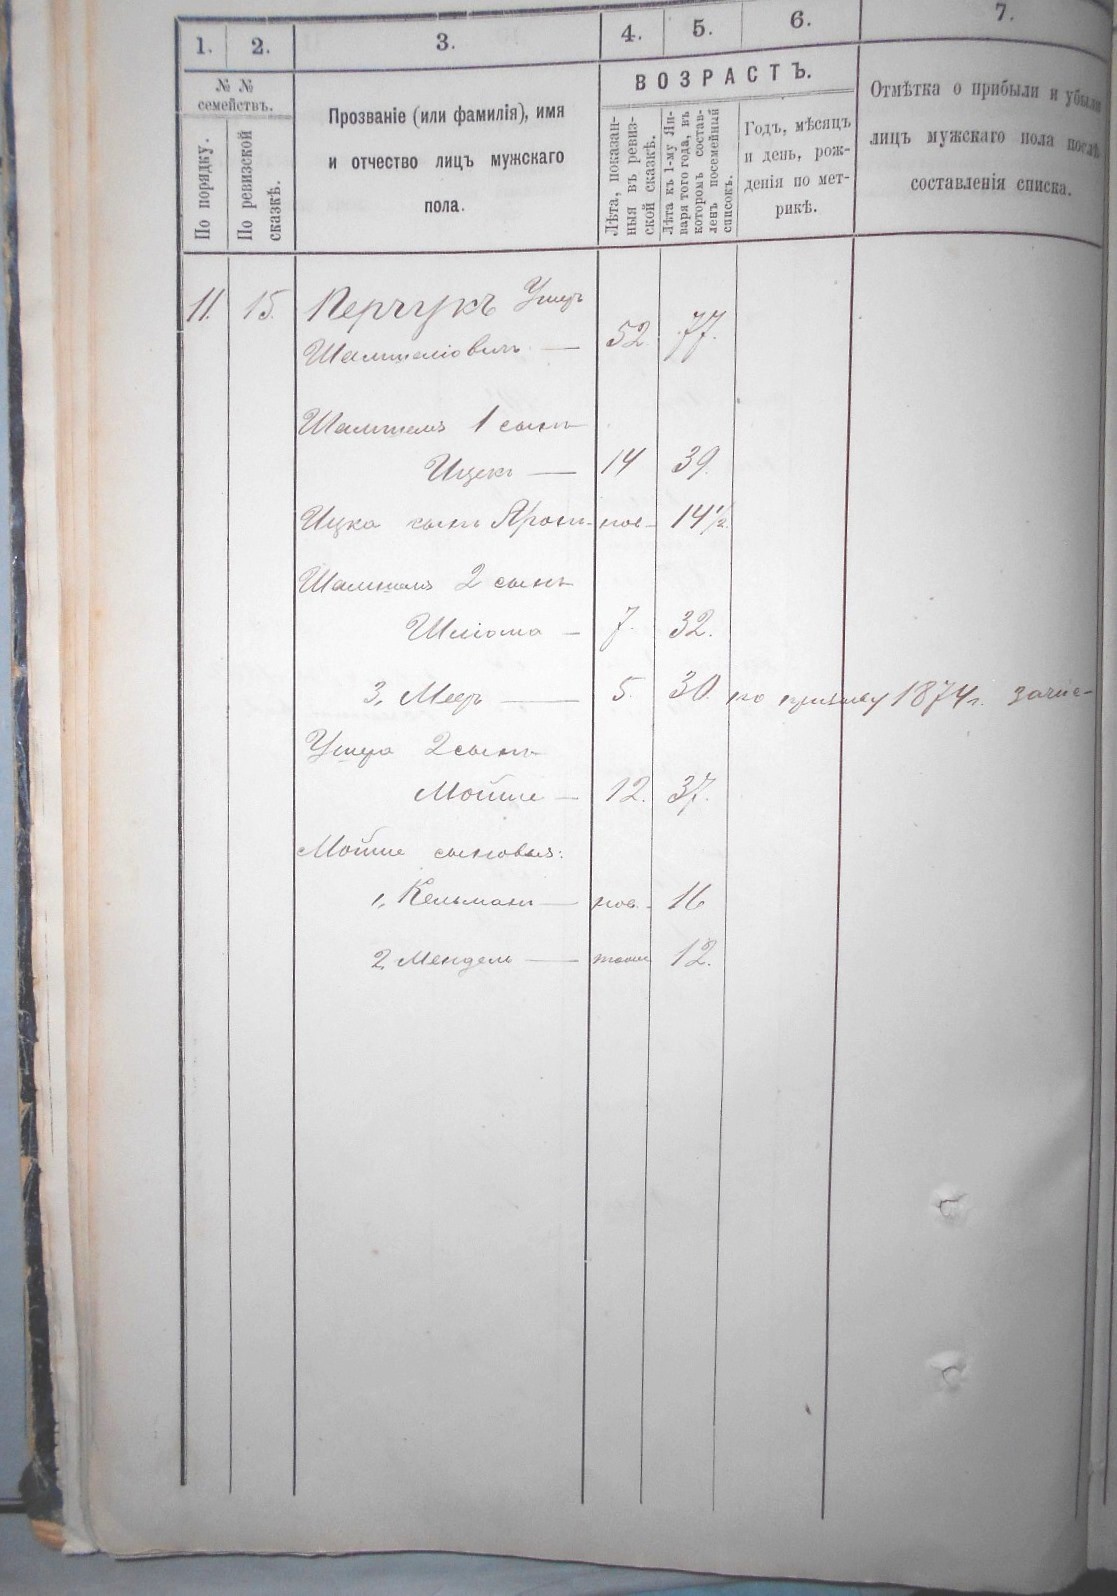 1. 2. 3. 4. 5. 6. 7.
№ № семействъ.
По порядку.
По ревизской сказкѣ.
Прозваніе (или фамилія), имя
и отчество лицъ мужскаго
пола.
ВОЗРАСТЪ.
Лѣта, показан-
ныя въ ревиз-
ской сказкѣ.
Лѣта къ 1-му Ян-
варя того года, въ
которомъ состав-
ленъ посемейный
списокъ.
Годъ, мѣсяцъ
и день, рож-
денія по мет-
рикѣ.
Отмѣтка о прибыли и убыли
лицъ мужскаго пола послѣ
составленія списка.
11. 15. Перчукъ Ушеръ
52. 77.
1 сынъ
Ицекъ — 14 39.
Ицка сынъ Аронъ нов. 14½
2 сынъ
Шліома — 7. 32.
3, Мееръ — 5. 30. по призыву 1874 г. зачис-
Ушера 2 сынъ
Мойше — 12. 37.
Мойше сыновья:
1, Кельманъ — нов. 16
2, Мендель — тоже 12.